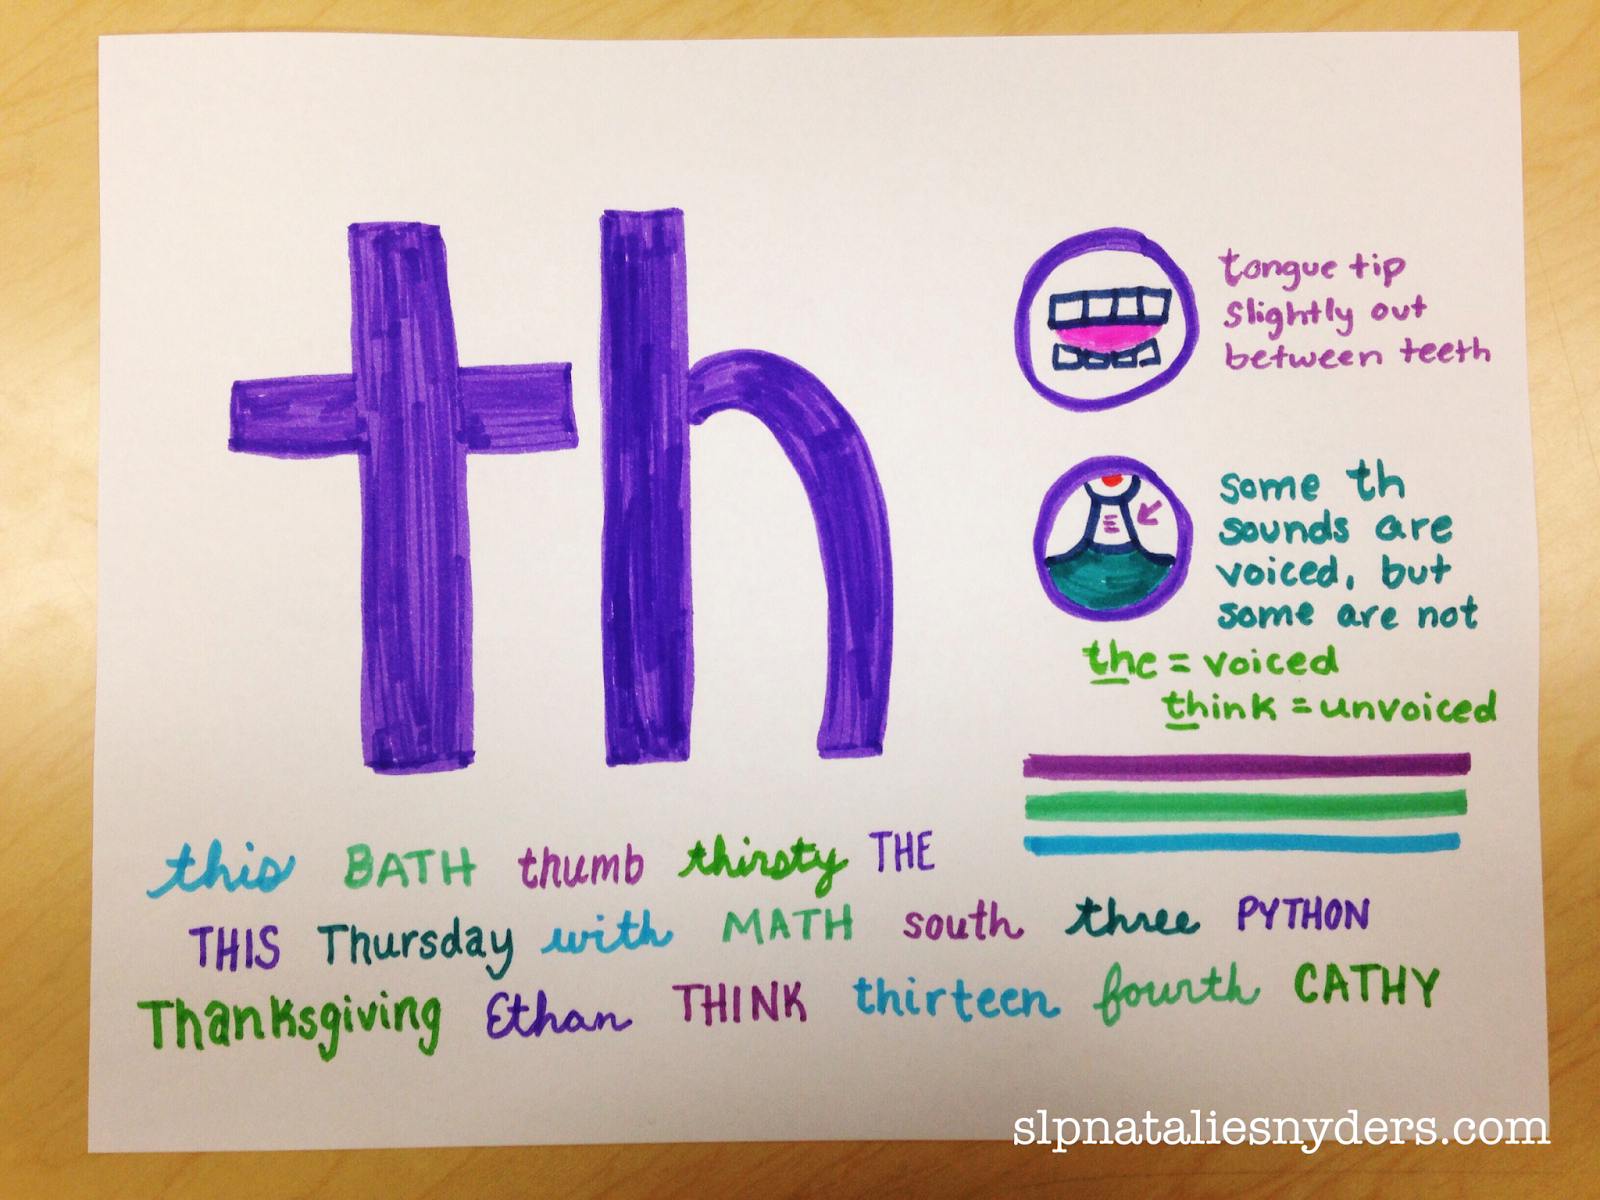 th
tongue tip
slightly out
between teeth
some th
sounds are
voiced, but
some are not
the = voiced
think = unvoiced
this BATH thumb thirsty THE
THIS Thursday with MATH south three PYTHON
Thanksgiving Ethan THINK thirteen fourth CATHY
slpnataliesnyders.com